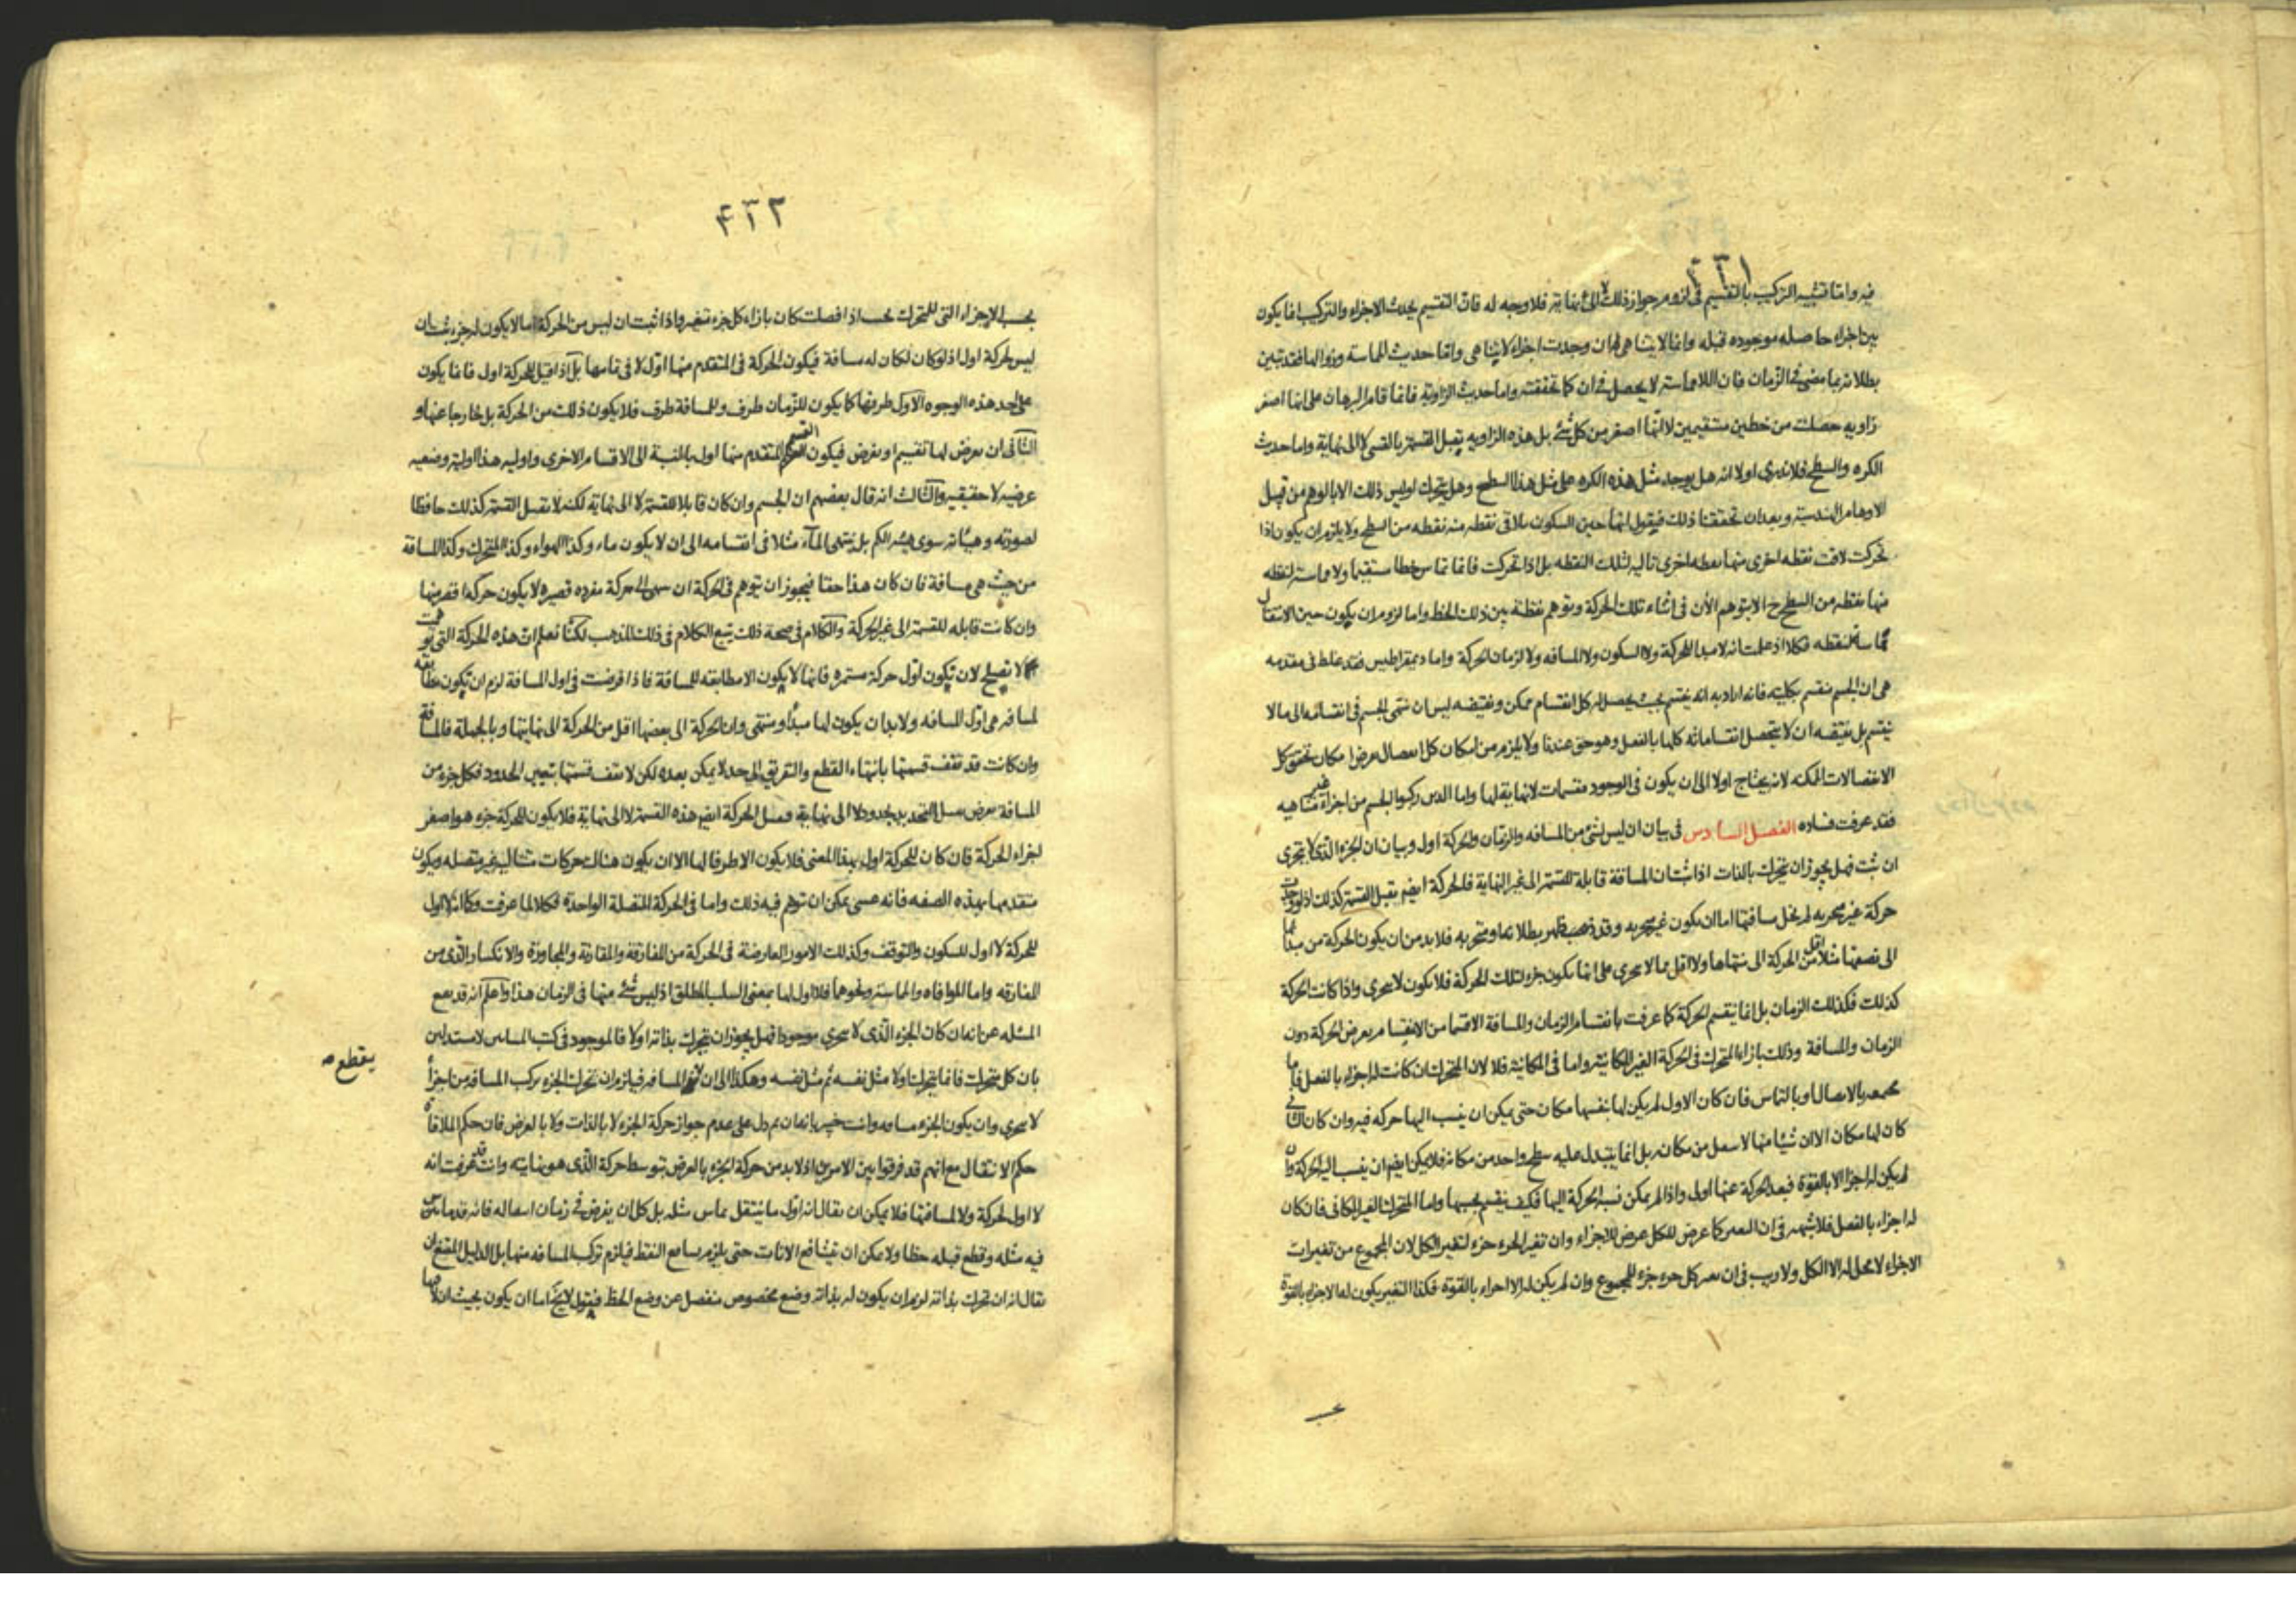 ٤٣١
فيه واما تشبيه التركيب بالتقسيم في لزوم جواز ذلك لا الى نهاية فلا وجه له فان التقسيم يحدث الاجزاء والتركيب انما يكون
بين اجزاء حاصله موجوده قبله وانما لا يتناهى لو وجدت اجزاء لا يتناهى واما حديث المماسة وزوالها فقد تبين
بطلانه بما مضى في الزمان فان اللامماسة لا يحصل في ان كما تحققته واما حديث الزاوية فانما قام البرهان على انها اصغر
زاويه حصلت من خطين مستقيمين لا انها اصغر من كل شئ بل هذه الزاويه يقبل القسمة بالقسى لا الى نهاية واما حديث
الكره والسطح فلا ندرى اولا انه هل يوجد مثل هذه الكره على مثل هذا السطح وهل يتحرك او ليس ذلك الا بالوهم من قبيل
الاوهام الهندسية وبعد ان تحققنا ذلك فيقول انها حين السكون يلاقى نقطه منه نقطه من السطح ولا يلزم ان يكون اذا
تحركت لاقت نقطه اخرى منها نقطه اخرى تاليه لتلك النقطه بل اذا تحركت فانما تماس خطا مستقيما ولا مماسة لنقطه
منها بنقطه من السطح ح الا بتوهم الآن في اثناء تلك الحركة وتوهم نقطة بين ذلك الخط واما لزوم ان يكون حين الانتقال
مماسا لنقطه فكلا اذ علمت انه لا مبدا للحركة ولا السكون ولا المسافه ولا لزمان الحركة واما ديمقراطيس فقد غلط في مقدمه
هى ان الجسم منقسم بكليته فانه اراد به انه ينقسم بحيث يحصل له كل انقسام ممكن ونقيضه ليس ان ينتهى الجسم في انقسامه الى ما لا
ينقسم بل نقيضه ان لا يتحصل انقساماته كلها بالفعل وهو حق عندنا ولا يلزم من امكان كل انفصال بعرض امكان تحقق كل
الانفصالات الممكنه لانه يحتاج اولا الى ان يكون في الوجود منقسمات لا نهاية لها واما الذين ركبوا الجسم من اجزاء غير متناهيه
فقد عرفت فساده الفصل السادس في بيان ان ليس لشئ من المسافه والزمان والحركة اول وبيان ان الجزء الذى لا يتجزى
ان ثبت فهل يجوز ان يتحرك بالذات اذا ثبت ان المسافة قابلة للقسمة الى غير النهاية فالحركة ايضم يقبل القسمة كذلك اذ لو وجدت
حركة غير متجزيه لم يخل مسافتها اما ان يكون غير متجزيه وقد ظهر بطلانه او متجزيه فلا بد من ان يكون الحركة من مبدائها
الى نصفها مثلا اقل من الحركة الى منتهاها ولا اقل مما لا يتجزى على انها يكون جزء لتلك الحركة فلا يكون لا يتجزى واذا كانت الحركة
كذلك فكذلك الزمان بل انما ينقسم الحركة كما عرفت بانقسام الزمان والمسافة الا قسما من الانقسام يعرض الحركة دون
الزمان والمسافة وذلك بازاء المتحرك في الحركة الغير المكانية واما في المكانية فلا لان المتحرك ان كانت له اجزاء بالفعل فاما
مجتمعه بالاتصال او بالتماس فان كان الاول لم يكن لها بنفسها مكان حتى يمكن ان ينسب اليها حركه فيه وان كان الثانى
كان لها مكان الا ان شيئا منها لا ينتقل من مكانه بل انما يتبدل عليه سطح واحد من مكانه فلا يمكن ايضم ان ينسب اليه الحركة وان
لم يكن له اجزاء الا بالقوة فبعد الحركة عنها اولى واذا لم يمكن نسبة الحركة اليها فكيف ينقسم بحسبها واما المتحرك الغير المكانى فان كان
له اجزاء بالفعل فلا شبهه في ان التغير كما عرض للكل عرض للاجزاء وان تغير الجزء جزء لتغير الكل لان المجموع من تغيرات
الاجزاء لا محل له الا الكل ولا ريب في ان تغير كل جزء جزء للمجموع وان لم يكن له الا اجزاء بالقوة فكذا التغير يكون له الاجزاء بالقوة
٤٣٢
بحسب الاجزاء التى للمتحرك بحيث اذا فصلت كان بازاء كل جزء تغير واذا ثبت ان ليس من الحركة ما لا يكون له جزء ثبت ان
ليس لحركة اول اذ لو كان لكان له مسافة فيكون الحركة في المتقدم منها اول لا في تمامها بل اذا قيل للحركة اول فانما يكون
على احد هذه الوجوه الاول طرفها كما يكون للزمان طرف وللمسافة طرف فلا يكون ذلك من الحركة بل خارجا عنها و
الثانى ان يعرض لها تقسيم او بفرض فيكون القسم المتقدم منها اول بالنسبة الى الاقسام الاخرى واوليه هذا اولية وضعيه
عرضيه لا حقيقيه والثالث انه قال بعضهم ان الجسم وان كان قابلا للقسمة لا الى نهاية لكنه لا يقبل القسمة كذلك حافظا
لصورته وهيئاته سوى هيئه الكم بل ينتهى الماء مثلا في انقسامه الى ان لا يكون ماء وكذا الهواء وكذا المتحرك وكذا المسافة
من حيث هى مسافة فان كان هذا حقا فيجوز ان يتوهم في الحركة ان ينتهى الى حركة مفرده قصيره لا يكون حركة اقصر منها
وان كانت قابله للقسمة الى غير الحركة والكلام في صحة ذلك يتبع الكلام في ذلك المذهب لكنا نعلم ان هذه الحركة التى توهمت
لا تصلح لان تكون اول حركة مستمره فانها لا يكون الا مطابقه للمسافة فاذا فرضت في اول المسافة لزم ان تكون مطابقه
لمسافه هى اول المسافه ولا بد ان يكون لها مبدأ ومنتهى وان الحركة الى بعضها اقل من الحركة الى نهايتها وبالجملة فالمسافة
وان كانت قد تقف قسمتها بانتهاء القطع والتفريق الى حد لا يمكن بعده لكن لا تقف قسمتها بتعيين الحدود فكل جزء من
المسافة يعرض يقبل التحديد بحدود لا الى نهاية فتقبل الحركة ايضم هذه القسمة لا الى نهاية فلا يكون للحركة جزء هو اصغر
اجزاء الحركة فان كان للحركة اول بهذا المعنى فلا يكون الا طرفا لها الا ان يكون هناك حركات متتاليه غير متصله ويكون
متقدمها بهذه الصفه فانه عسى يمكن ان يتوهم فيه ذلك واما في الحركة المتصلة الواحدة فكلا لما عرفت وكما لا اول
للحركة لا اول للسكون والتوقف وكذلك الامور العارضة في الحركة من المفارقة والمقارنة والمجاوزة والانكسار والذى من
المفارقه واما الموافاه والمماسة ونحوهما فلا اول لها بمعنى السلب المطلق اذ ليس شئ منها في الزمان هذا واعلم انه قد يقع
المسئله عن انه ان كان الجزء الذى لا يتجزى موجودا فهل يجوز ان يتحرك بذاته اولا فالموجود في كتب
بان كل متحرك فانما يتحرك اولا مثل نفسه ثم مثل نفسه وهكذا الى ان المسافه فيلزم ان تحرك الجزء تركب المسافه من اجزاء
يقطع صه
لا يتجزى وان يكون الجزء مسافه وانت خبير بانه ان تم دل على عدم جواز حركة الجزء لا بالذات ولا بالعرض فان حكم الملاقاه
حكم الانتقال مع انهم قد فرقوا بين الامرين اذ لا بد من حركة الجزء بالعرض بتوسط حركة الذى هو نهايته وانت قد عرفت انه
لا اول لحركة ولا لمسافتها فلا يمكن ان يقال انه اول ما ينتقل يماس مثله بل كل ان يفرض في زمان انتقاله فانه قد ماس
فيه مثله وقطع قبله خطا ولا يمكن ان يتشافع الانات حتى يلزم تشافع النقط فيلزم تركب المسافه منها بل الدليل المقنع ان
يقال انه ان تحرك بذاته لزم ان يكون له بذاته وضع مخصوص منفصل عن وضع الخط فنقول لا يخ اما ان يكون بحيث ان